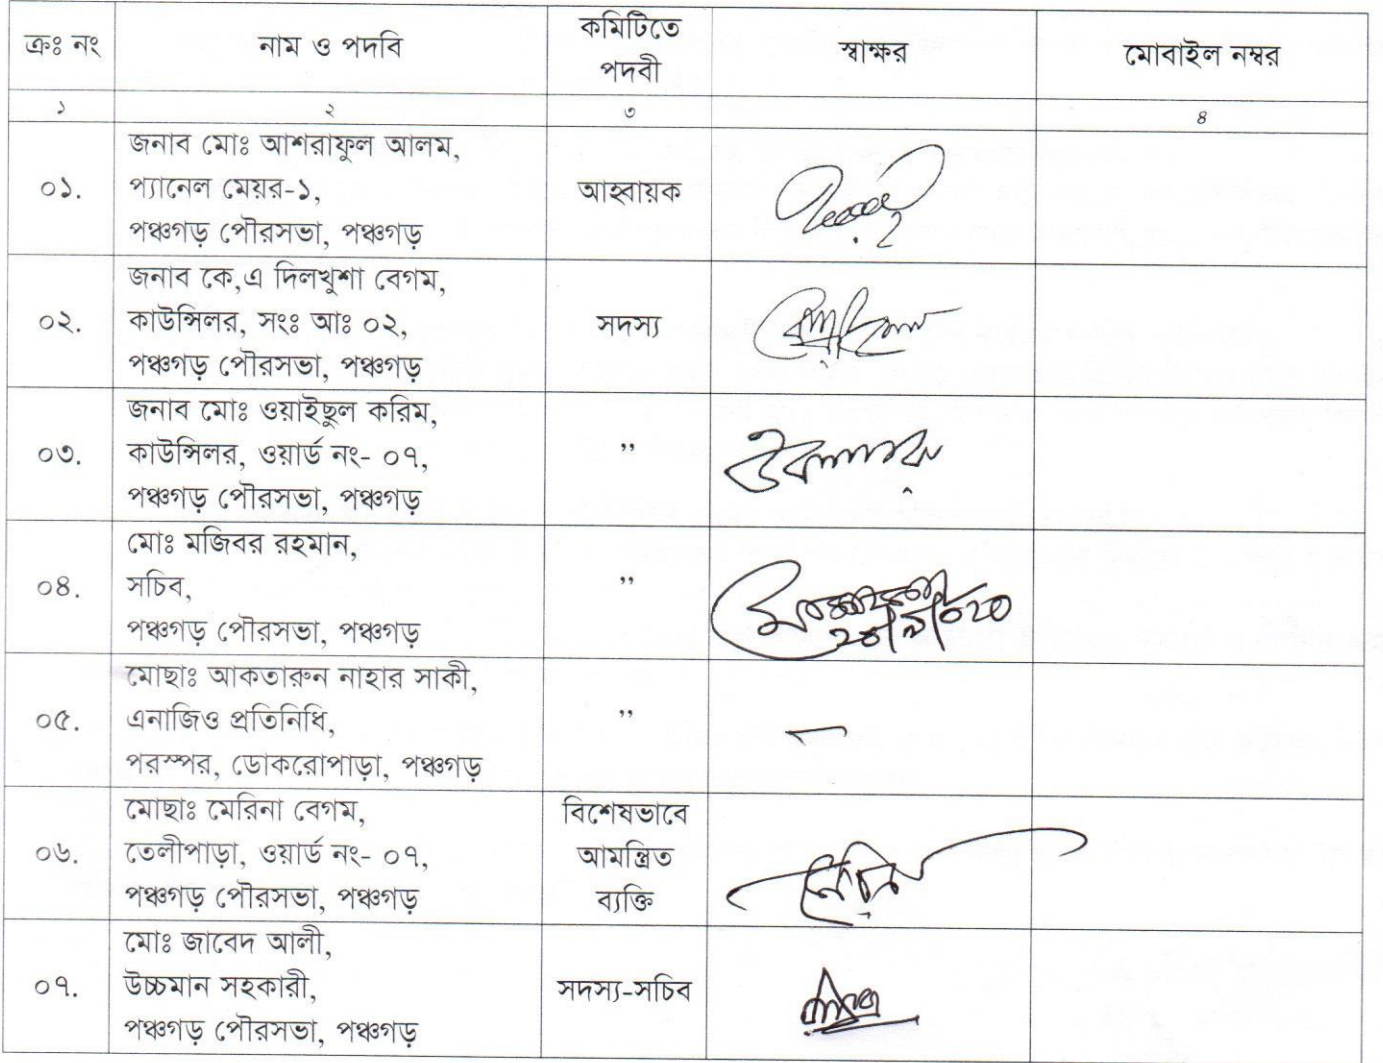 ক্রঃ নং
নাম ও পদবি
কমিটিতে
পদবী
স্বাক্ষর
মোবাইল নম্বর
১
২
৩
৪
০১.
জনাব মোঃ আশরাফুল আলম,
প্যানেল মেয়র-১,
পঞ্চগড় পৌরসভা, পঞ্চগড়
আহ্বায়ক
০২.
জনাব কে,এ দিলখুশা বেগম,
কাউন্সিলর, সংঃ আঃ ০২,
পঞ্চগড় পৌরসভা, পঞ্চগড়
সদস্য
০৩.
জনাব মোঃ ওয়াইছুল করিম,
কাউন্সিলর, ওয়ার্ড নং- ০৭,
পঞ্চগড় পৌরসভা, পঞ্চগড়
”
০৪.
মোঃ মজিবর রহমান,
সচিব,
পঞ্চগড় পৌরসভা, পঞ্চগড়
”
০৫.
মোছাঃ আকতারুন নাহার সাকী,
এনাজিও প্রতিনিধি,
পরস্পর, ডোকরোপাড়া, পঞ্চগড়
”
০৬.
মোছাঃ মেরিনা বেগম,
তেলীপাড়া, ওয়ার্ড নং- ০৭,
পঞ্চগড় পৌরসভা, পঞ্চগড়
বিশেষভাবে
আমন্ত্রিত
ব্যক্তি
০৭.
মোঃ জাবেদ আলী,
উচ্চমান সহকারী,
পঞ্চগড় পৌরসভা, পঞ্চগড়
সদস্য-সচিব